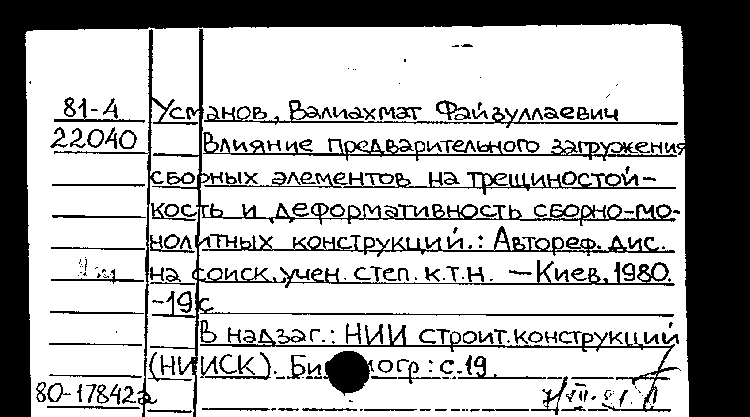 81-4 Усманов, Валиахмат Файзуллаевич
22040 Влияние предварительного загружения
сборных элементов на трещиностой-
кость и деформативность сборно-мо-
нолитных конструкций.: Автореф. дис.
на соиск. учен. степ. к.т.н. — Киев, 1980.
-19с
В надзаг.: НИИ строит. конструкций
(НИИСК). Би огр: с.19.
80-17842а